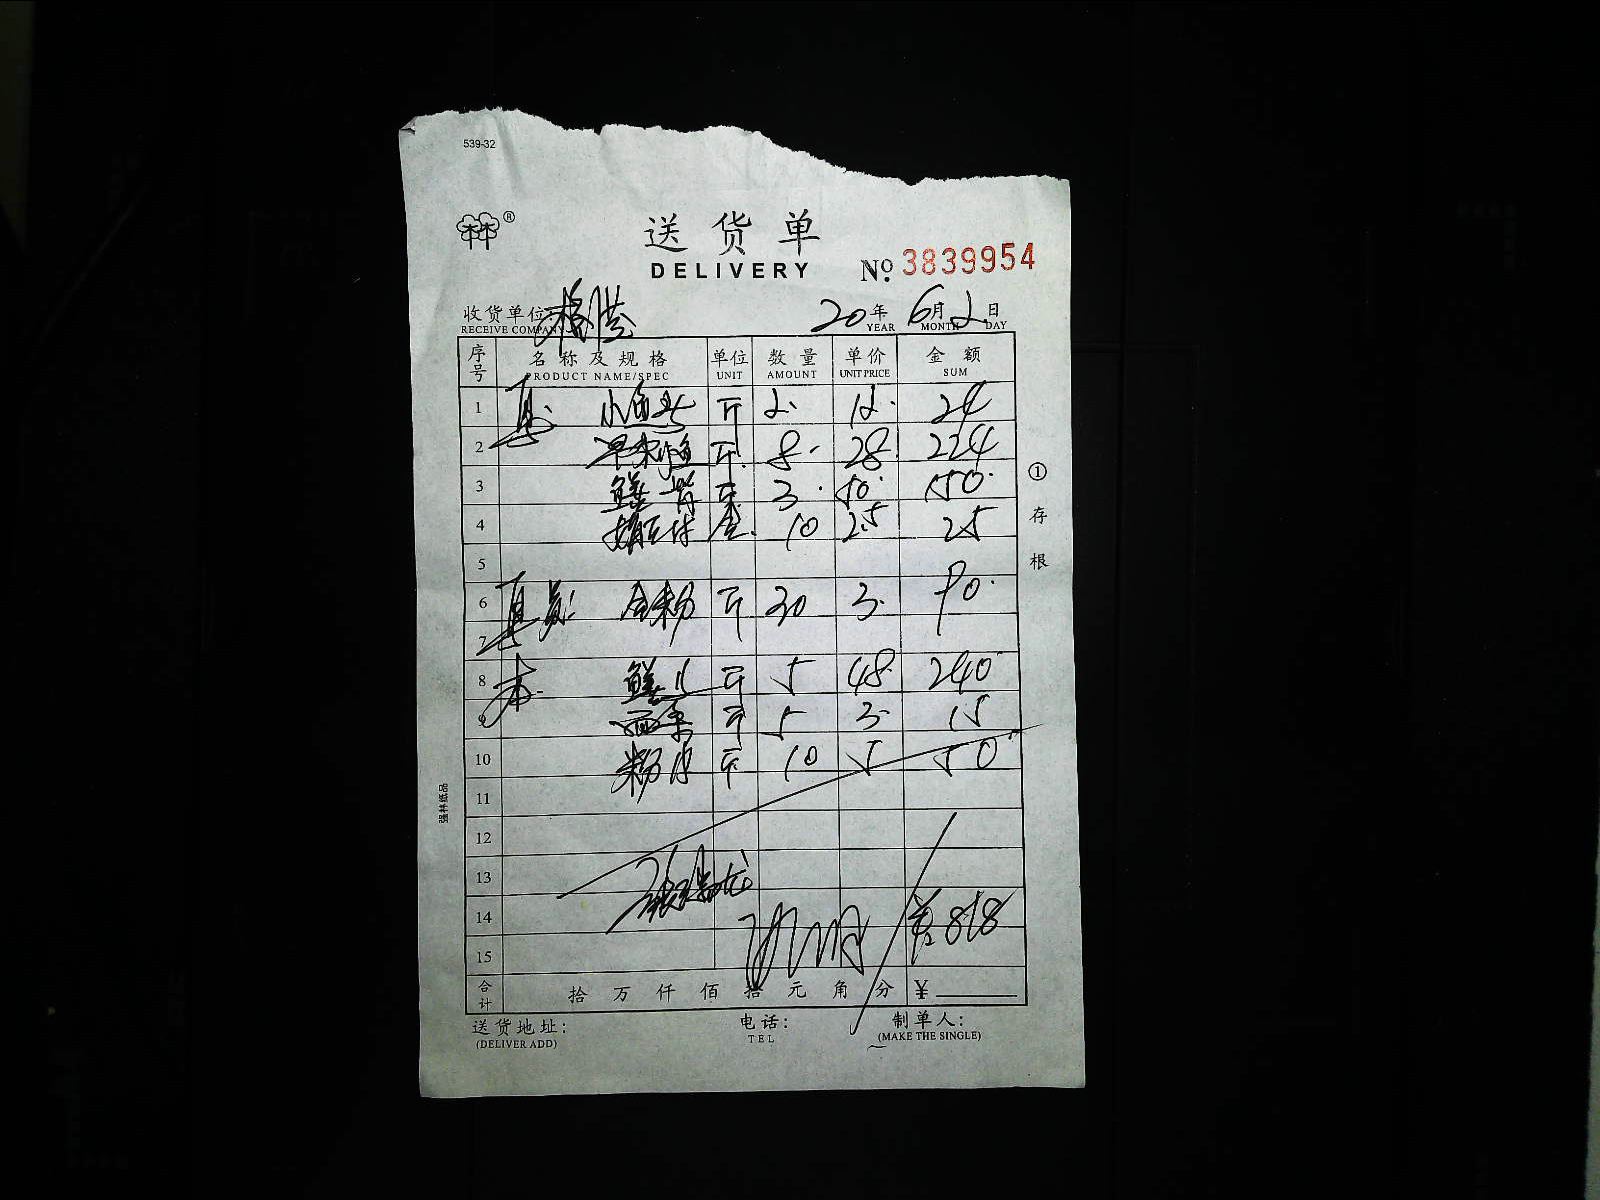 539-32
林®
送货单
DELIVERY № 3839954
收货单位 20年 6月 2日
RECEIVE COMPANY YEAR MONTH DAY
序号 名称及规格 单位 数量 单价 金额
PRODUCT NAME/SPEC UNIT AMOUNT UNIT PRICE SUM
1 小鱼头 斤 2. 12. 24
2 斤 8. 28 224
3 斤 3. 50. 150.
4 10 2.5 25
5
6 斤 30 3. 90.
7
8 斤 5 48. 240
9 斤 5 3. 15
10 粉皮 斤 10 5 50
11
12
13
14 818
15
合计 拾 万 仟 佰 拾 元 角 分 ¥
送货地址: 电话: 制单人:
(DELIVER ADD) TEL (MAKE THE SINGLE)
①存根
强林纸品